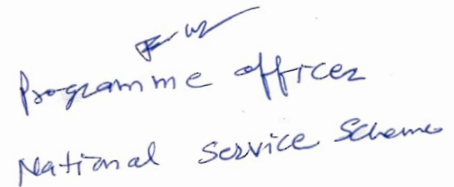 Programme officer
National Service Scheme